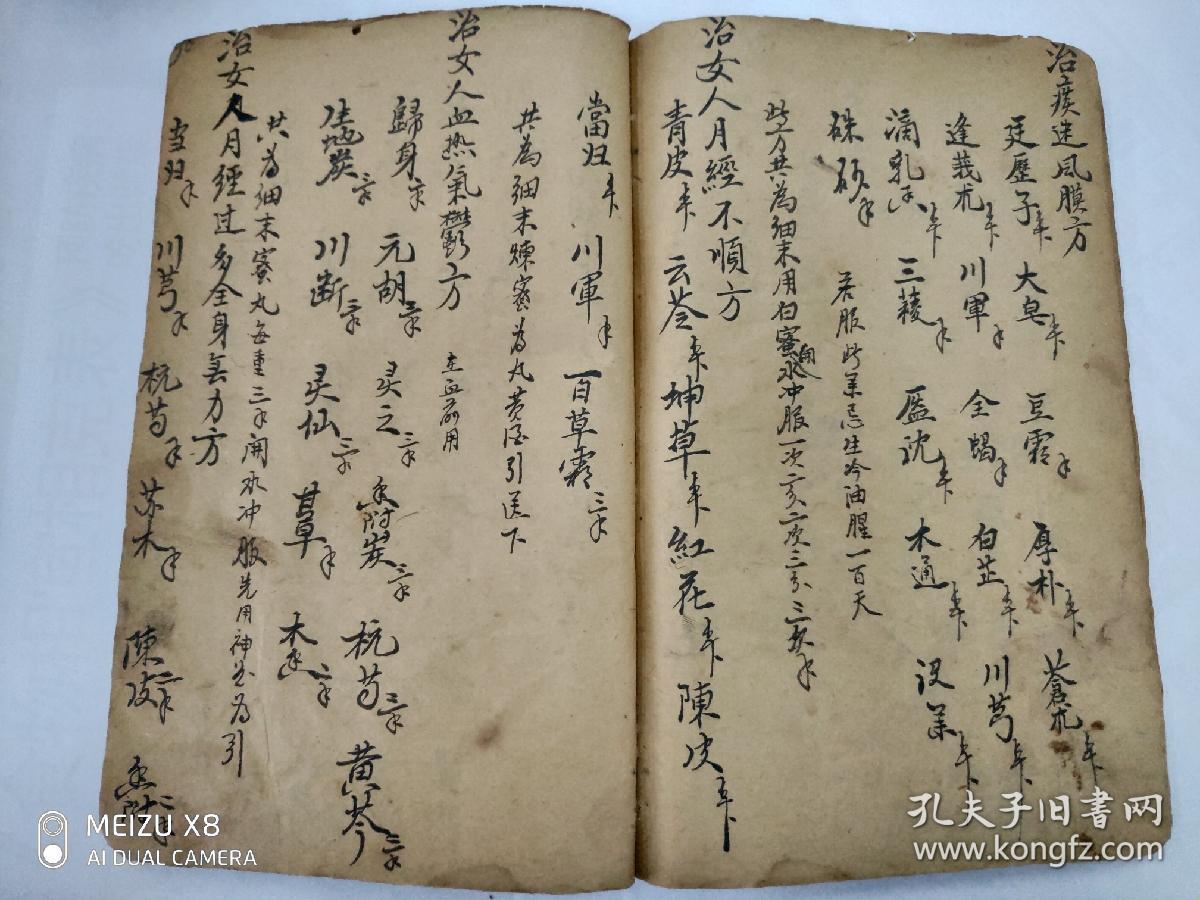 治痰迷风膜方
廷歴子 大皂 豆霜 厚朴 蒼朮
逢莪朮 川軍 全蝎 白芷 川芎
滴乳香 三薐 木通 没茉
硃砂 若服此茉忌生冷油腥一百天
此方共為细末用白蜜水冲服一次 二次三分 三
治女人月經不順方
青皮 云苓 坤草 紅花 陳皮
當归 川軍 百草霜 三
共為细末煉蜜為丸黄酒引送下
治女人血热氣鬱方 在 前用
歸身 元胡 灵之 香附炭 杭芍 黄芩
生地炭 川断 灵仙 甘草 木香
共為细末蜜丸每重三 開水冲服先用神 為引
治女人月經过多全身無力方
当归 川芎 杭芍 苏木 陳皮 香附
孔夫子旧书网
www.kongfz.com
MEIZU X8
AI DUAL CAMERA